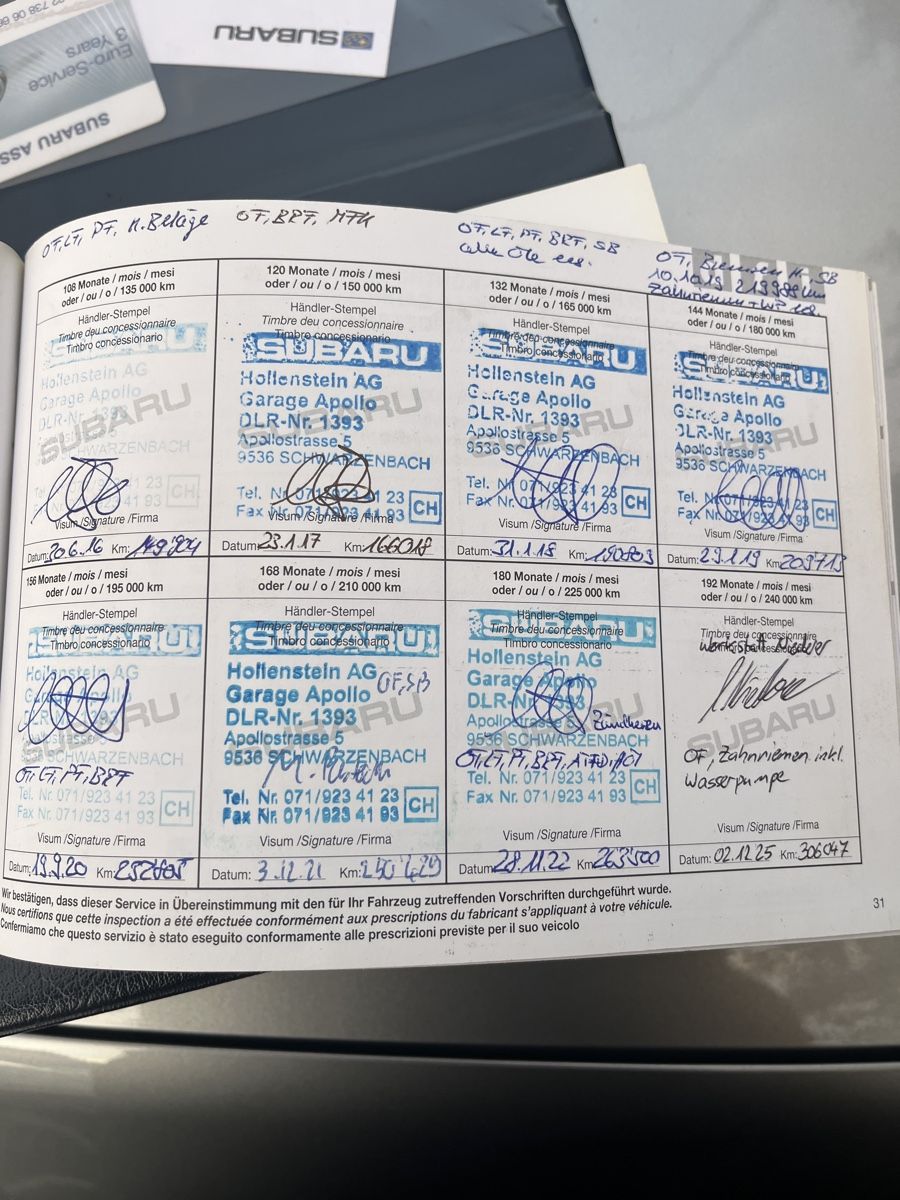 738 06 66
Euro-Service
3 Years
SUBARU ASS
SUBARU
OF, LF, PF, H. Beläge
OF, BRF, MFK
OF, LF, PF, BRF, SB
alle Öle ers.
OF, Bremsen H, SB
10.10.19 213988 km
Zahnriemen + WP
108 Monate / mois / mesi
oder / ou / o / 135 000 km
Händler-Stempel
Timbre deu concessionnaire
Timbro concessionario
SUBARU
Hollenstein AG
Garage Apollo
DLR-Nr. 1393
SCHWARZENBACH
Tel. Nr. 071/923 41 23
Fax Nr. 071/923 41 93
CH
SUBARU
Visum /Signature /Firma
Datum: 30.6.16 Km: 149'904
120 Monate / mois / mesi
oder / ou / o / 150 000 km
Händler-Stempel
Timbre deu concessionnaire
Timbro concessionario
SUBARU
Hollenstein AG
Garage Apollo
DLR-Nr. 1393
Apollostrasse 5
9536 SCHWARZENBACH
Tel. Nr. 071/923 41 23
Fax Nr. 071/923 41 93
CH
SUBARU
Visum /Signature /Firma
Datum: 23.1.17 Km: 166018
132 Monate / mois / mesi
oder / ou / o / 165 000 km
Händler-Stempel
Timbre deu concessionnaire
Timbro concessionario
SUBARU
Hollenstein AG
Garage Apollo
DLR-Nr. 1393
Apollostrasse 5
9536 SCHWARZENBACH
Tel. Nr. 071/923 41 23
Fax Nr. 071/923 41 93
CH
SUBARU
Visum /Signature /Firma
Datum: 31.1.18 Km: 190803
144 Monate / mois / mesi
oder / ou / o / 180 000 km
Händler-Stempel
Timbre deu concessionnaire
Timbro concessionario
SUBARU
Hollenstein AG
Garage Apollo
DLR-Nr. 1393
Apollostrasse 5
9536 SCHWARZENBACH
Tel. Nr. 071/923 41 23
Fax Nr. 071/923 41 93
CH
SUBARU
Visum /Signature /Firma
Datum: 29.1.19 Km: 209713
156 Monate / mois / mesi
oder / ou / o / 195 000 km
Händler-Stempel
Timbre deu concessionnaire
Timbro concessionario
SUBARU
Hollenstein AG
Garage Apollo
DLR-Nr. 1393
Apollostrasse 5
9536 SCHWARZENBACH
OF, LF, PF, BRF
Tel. Nr. 071/923 41 23
Fax Nr. 071/923 41 93
CH
SUBARU
Visum /Signature /Firma
Datum: 19.9.20 Km:
168 Monate / mois / mesi
oder / ou / o / 210 000 km
Händler-Stempel
Timbre deu concessionnaire
Timbro concessionario
SUBARU
Hollenstein AG
Garage Apollo OF, SB
DLR-Nr. 1393
Apollostrasse 5
9536 SCHWARZENBACH
Tel. Nr. 071/923 41 23
Fax Nr. 071/923 41 93
CH
SUBARU
Visum /Signature /Firma
Datum: 3.12.21 Km:
180 Monate / mois / mesi
oder / ou / o / 225 000 km
Händler-Stempel
Timbre deu concessionnaire
Timbro concessionario
SUBARU
Hollenstein AG
Garage Apollo
DLR-Nr. 1393
Apollostrasse 5 Zündkerzen
9536 SCHWARZENBACH
OF, LF, PF, BRF,
Tel. Nr. 071/923 41 23
Fax Nr. 071/923 41 93
CH
SUBARU
Visum /Signature /Firma
Datum: 28.11.22 Km: 263500
192 Monate / mois / mesi
oder / ou / o / 240 000 km
Händler-Stempel
Timbre deu concessionnaire
Timbro concessionario
SUBARU
OF, Zahnriemen inkl.
Wasserpumpe
Visum /Signature /Firma
Datum: 02.12.25 Km: 306047
Wir bestätigen, dass dieser Service in Übereinstimmung mit den für Ihr Fahrzeug zutreffenden Vorschriften durchgeführt wurde.
Nous certifions que cette inspection a été effectuée conformément aux prescriptions du fabricant s'appliquant à votre véhicule.
Confermiamo che questo servizio è stato eseguito conformamente alle prescrizioni previste per il suo veicolo
31